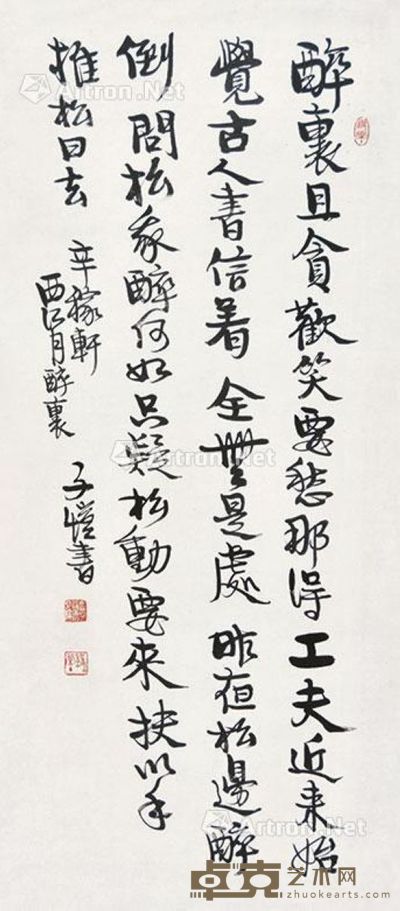 醉裏且貪歡笑要愁那得工夫近来始
覺古人書信着全無是處昨夜松邊醉
倒問松我醉何如只疑松動要來扶以手
推松曰去
辛稼軒
西江月醉裏
子愷書
Artron.Net
卓克艺术网
zhuokearts.com